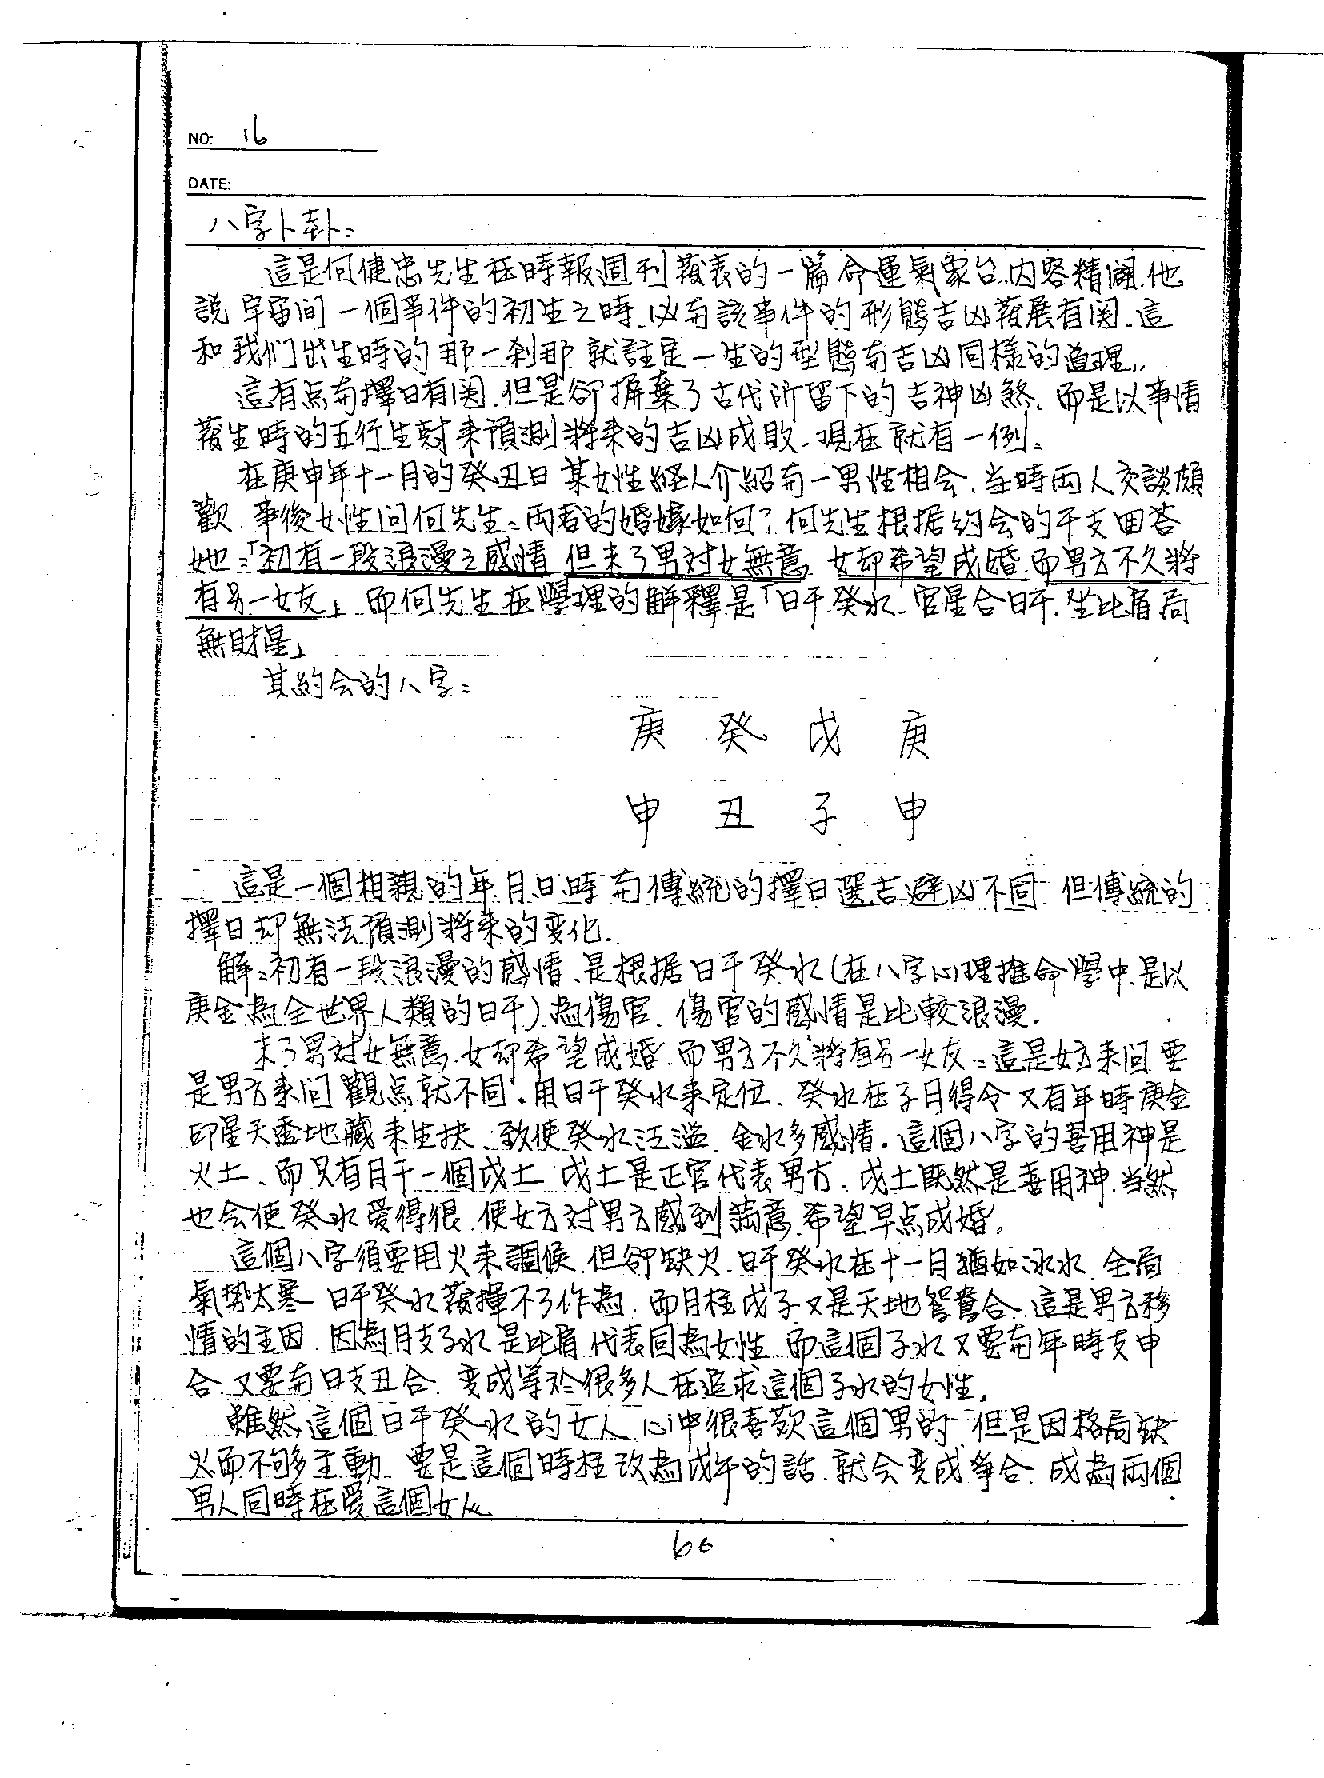 NO: 16
DATE:
八字卜卦:
這是何健忠先生在時報週刊發表的一篇命運氣象台.內容精闢.他
說宇宙间一個事件的初生之時.以有該事件的形態吉凶發展有関.這
和我们出生時的那一刹那就註定一生的型態有吉凶同樣的道理,.
這有点有擇日有関.但是卻摒棄了古代所留下的吉神凶煞.而是以事情
發生時的五行生尅来預測將来的吉凶成敗.現在就有一例:
在庚申年十一月的癸丑日某女性経人介紹有一男性相会.当時兩人交談頗
歡.事後女性问何先生:兩者的婚嫁如何?何先生根据约会的干支回答
她:「初有一段浪漫之感情.但末了男対女無意.女却希望成婚.而男方不久將
有另一女友」.而何先生在學理的解釋是「日干癸水.官星合日干.坐比肩局
無財星」
其約会的八字:
庚 癸 戊 庚
申 丑 子 申
這是一個相親的年月日時.有傳統的擇日選吉避凶不同.但傳統的
擇日却無法預測將来的变化.
解:初有一段浪漫的感情.是根据日干癸水(在八字心理推命學中.是以
庚金為全世界人類的日干).為傷官.傷官的感情是比較浪漫.
末了男対女無意.女却希望成婚.而男方不久將有另一女友:這是女方来问.要
是男方来问觀点就不同.用日干癸水来定位.癸水在子月得令.又有年時庚金
印星天透地藏来生扶.致使癸水汪溢.金水多感情.這個八字的喜用神是
火土.而只有月干一個戊土.戊土是正官代表男方.戊土既然是喜用神.当然
也会使癸水愛得很.使女方対男方感到滿意.希望早点成婚.
這個八字須要用火来調侯.但卻缺火.日干癸水在十一月猶如冰水.全局
氣勢太寒.日干癸水發揮不了作為.而月柱戊子又是天地鴛鴦合.這是男方移
情的主因.因為月支子水是比肩.代表同為女性.而這個子水又要有年時支申
合.又要有日支丑合.変成等於很多人在追求這個子水的女性.
雖然這個日干癸水的女人.心中很喜歡這個男的.但是因格局缺
火而不够主動.要是這個時柱改為戊午的話.就会変成爭合.成為兩個
男人同時在愛這個女人
66